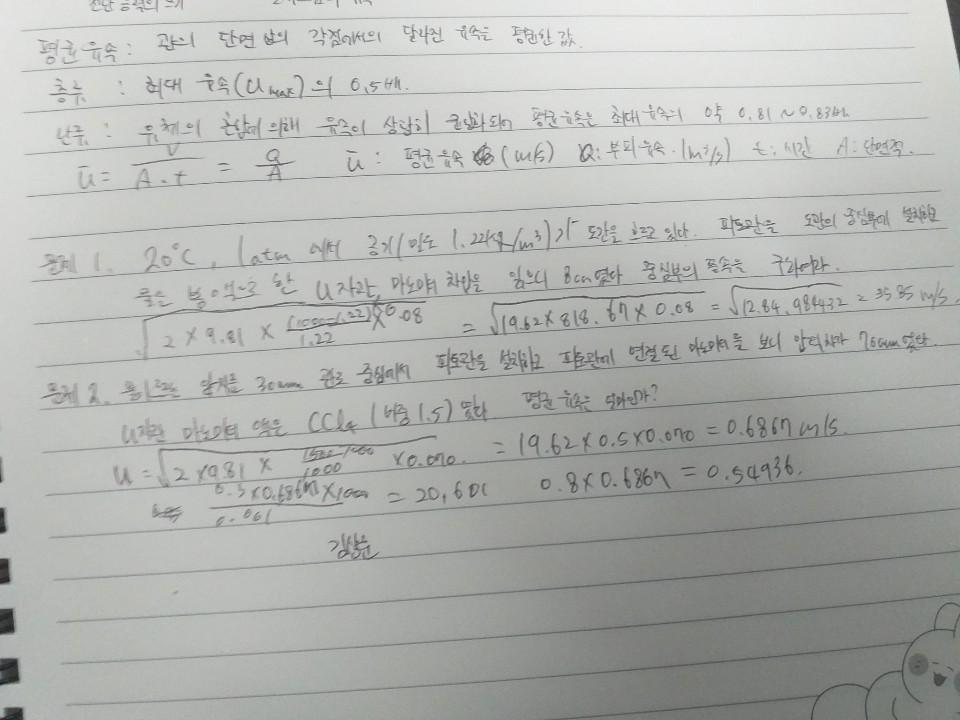 전단 응력의 크기
평균 유속 : 관의 단면 상의 각점에서의 달라진 유속을 평균한 값.
층류 : 최대 유속(Umax)의 0.5배.
난류 : 유체의 혼합에 의해 유속이 상당히 균일화되어 평균유속은 최대유속의 약 0.81 ~ 0.83배.
ū = V/A·t = Q/A ū : 평균유속 (m/s) Q : 부피유속 (m³/s) t : 시간 A : 단면적.
문제 1. 20°C, 1atm 에서 공기(밀도 1.22kg/m³)가 도관을 흐르고 있다. 피토관을 도관의 중심부에 설치하고
물을 봉액으로 한 U자관 마노미터 차압을 읽으니 8cm였다 중심부의 풍속을 구하여라.
√2 × 9.81 × (1000-1.22)/1.22 × 0.08 = √19.62 × 818.67 × 0.08 = √12.84.984432 = 35.85 m/s.
문제 2. 물이 흐르는 안지름 30mm 관로 중심에서 피토관을 설치하고 피토관에 연결된 마노미터를 보니 압력차가 70mm 였다.
U자관 마노미터 액은 CCl₄ (비중 1.5) 였다 평균 유속은 얼마인가?
U = √2 × 9.81 × (1500-1000)/1000 × 0.070. = 19.62 × 0.5 × 0.070 = 0.6867 m/s.
0.3 × 0.6867 × 1000 / 0.001 = 20,601 0.8 × 0.6867 = 0.54936.